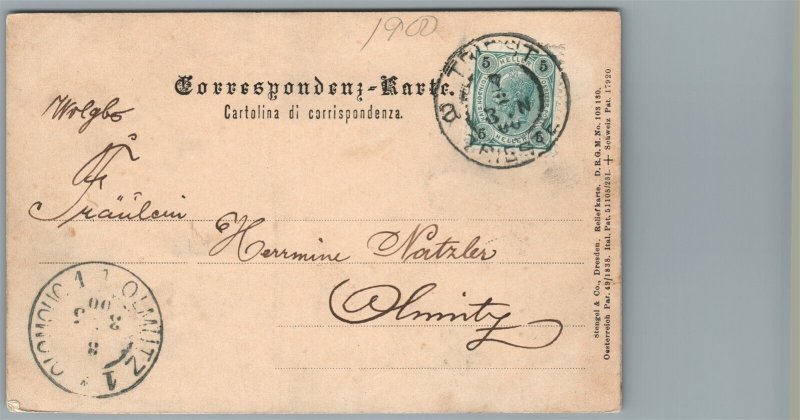 1900
Correspondenz-Karte.
Cartolina di corrispondenza.
5 HELLER 5
5 HELLER 5
TRIEST
TRIESTE
Wolgbo
Fräulein
Herrmine Natzler
Olmütz
OLMÜTZ 1
OLOMOUC 1
Stengel & Co., Dresden. Reliefkarte. D. R. G. M. No. 108 130.
Oesterreich Pat. 49/1838. Ital. Pat. 51108/251. + Schweiz Pat. 17920